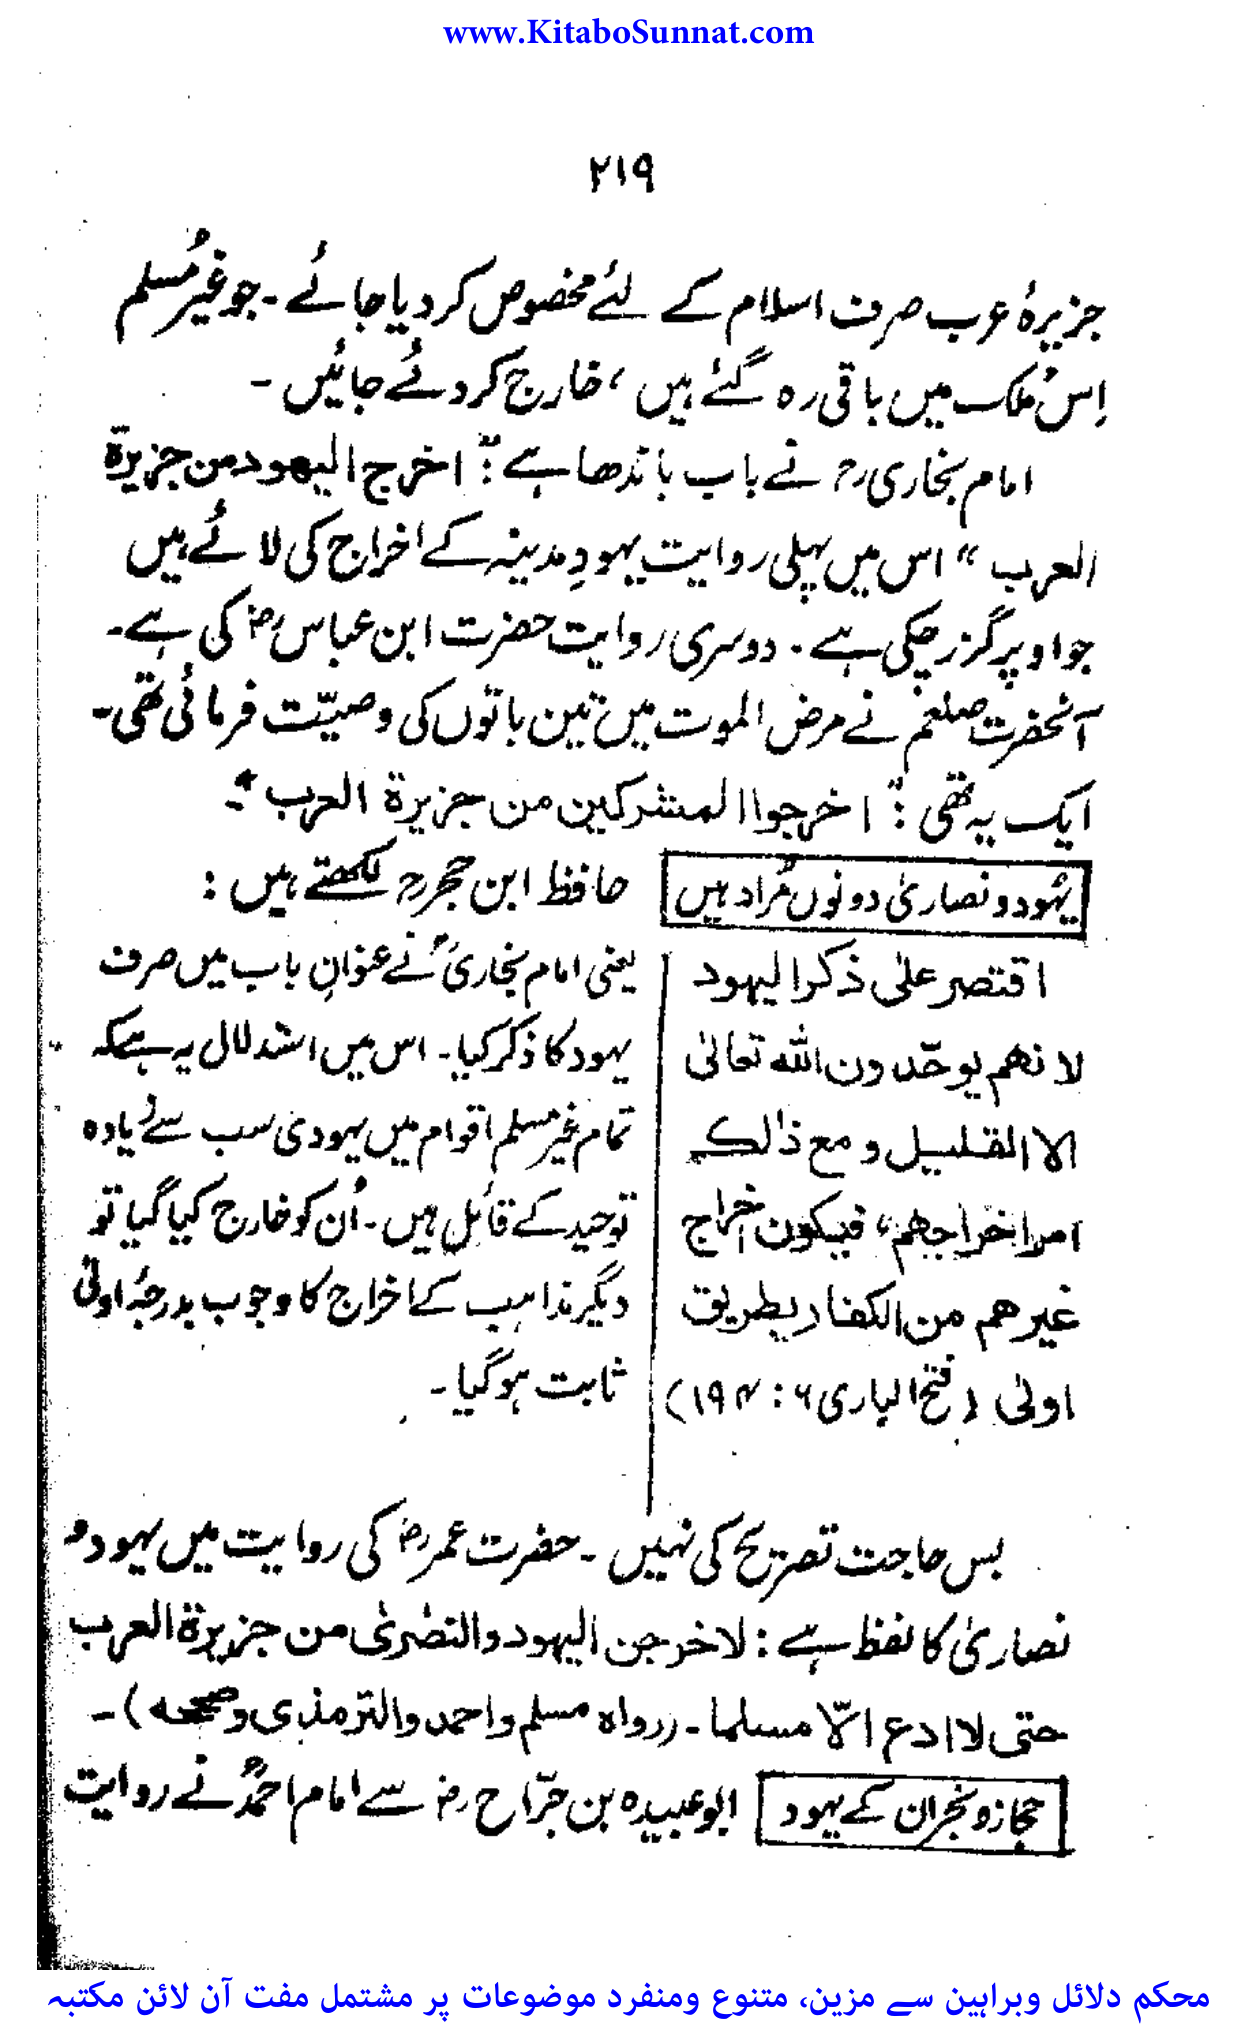 www.KitaboSunnat.com
۲۱۹
جزیرۂ عرب صرف اسلام کے لئے مخصوص کر دیا جائے ۔ جو غیر مُسلم
اِس مُلک میں باقی رہ گئے ہیں ، خارج کر دئے جائیں ۔
امام بخاری رح نے باب باندھا ہے : " اخرج الیهود من جزیرۃ
العرب " اس میں پہلی روایت یہودِ مدینہ کے اخراج کی لائے ہیں
جو اوپر گزر چکی ہے ۔ دوسری روایت حضرت ابن عباس رض کی ہے ۔
آنحضرت صلعم نے مرض الموت میں تین باتوں کی وصیّت فرمائی تھی ۔
ایک یہ تھی : " اخرجوا المشرکین من جزیرۃ العرب " ۔
یہُود و نصاریٰ دونوں مُراد ہیں
حافظ ابن حجر رح لکھتے ہیں :
اقتصر علی ذکر الیهود
لانهم یوحّدون الله تعالیٰ
الا القلیل و مع ذالک
امر اخراجهم ، فیکون اخراج
غیرهم من الکفار بطریق
اولیٰ ( فتح الباری ۶ : ۱۹۴ )
یعنی امام بخاریؒ نے عنوانِ باب میں صرف
یہود کا ذکر کیا ۔ اس میں استدلال یہ ہے کہ
تمام غیر مسلم اقوام میں یہودی سب سے زیادہ
توحید کے قائل ہیں ۔ اُن کو خارج کیا گیا تو
دیگر مذاہب کے اخراج کا وجوب بدرجۂ اولیٰ
ثابت ہو گیا ۔
بس حاجت تصریح کی نہیں ۔ حضرت عمر رض کی روایت میں یہود و
نصاریٰ کا لفظ ہے : لاخرجن الیهود والنصٰریٰ من جزیرۃ العرب
حتی لا ادع الّا مسلما ۔ ( رواہ مسلم واحمد والترمذی وصححه ) ۔
حجاز و نجران کے یہود
ابو عبیدہ بن جرّاح رض سے امام احمدؒ نے روایت
محکم دلائل وبراہین سے مزین، متنوع ومنفرد موضوعات پر مشتمل مفت آن لائن مکتبہ